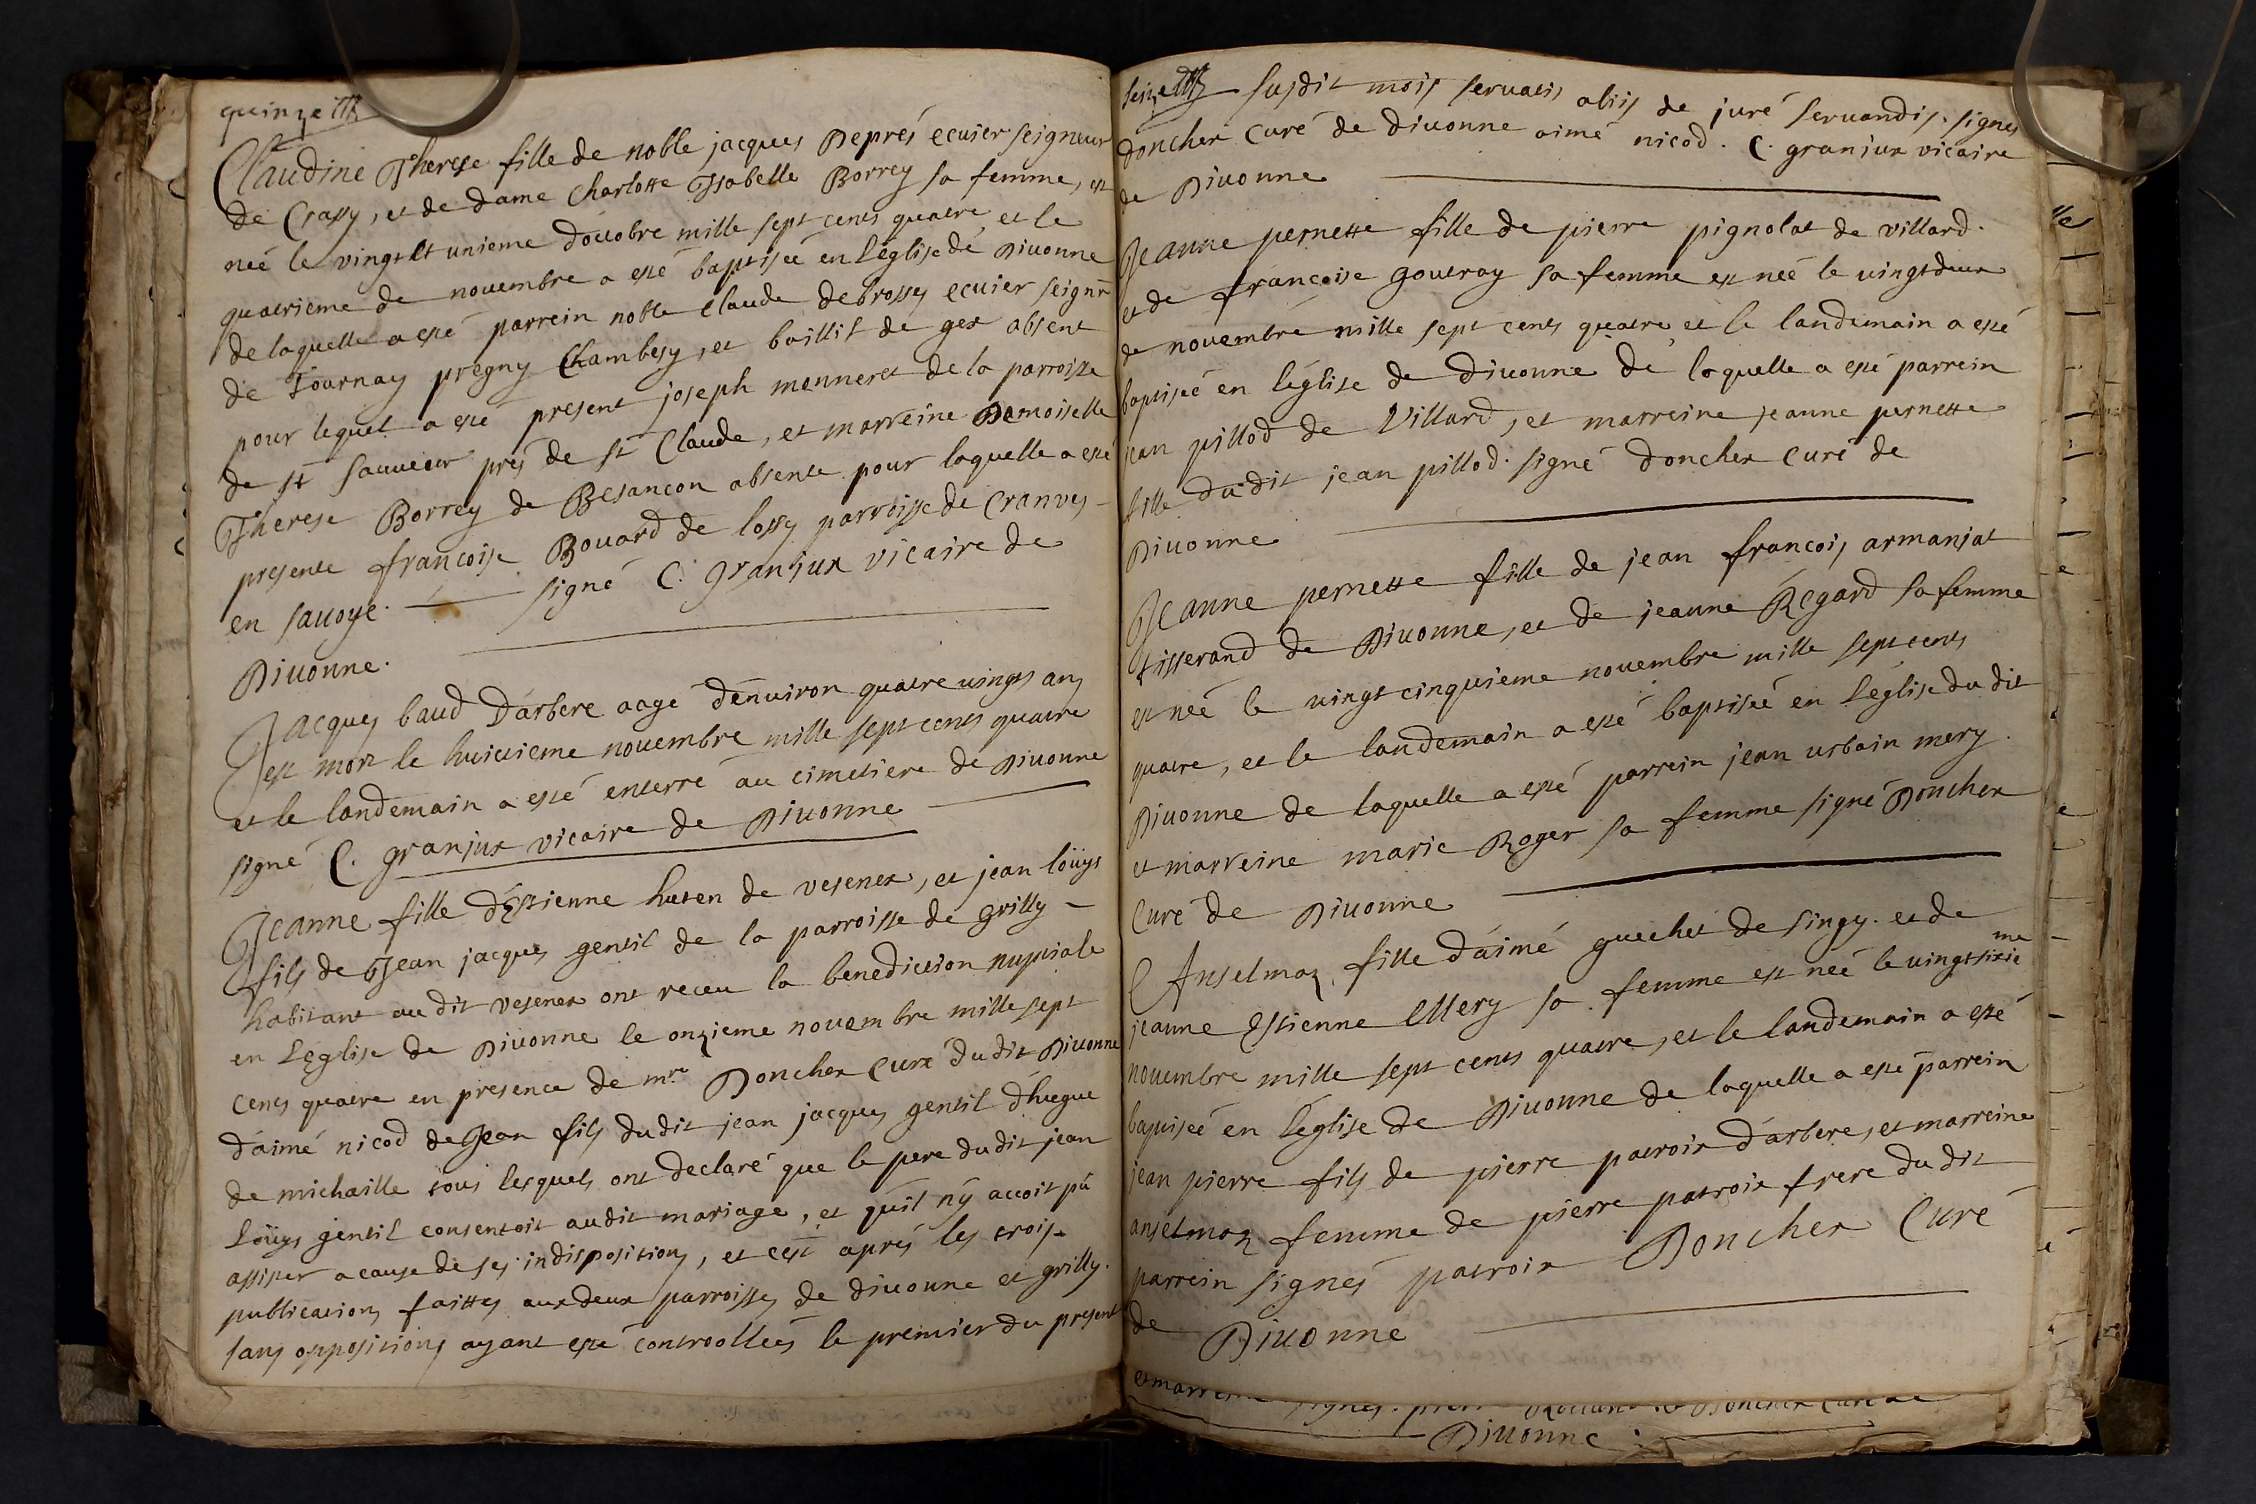 quinze
Claudine Therese fille de noble jacques Deprés ecuier seigneur
de Crassy, et de dame Charlotte Ysabelle Borrey sa femme, est
neé le vingt et unieme d'octobre mille sept cents quatre, et le
quatrieme de novembre a esté baptiseé en L'église de Divonne
de laquelle a esté parrein noble claude debrosses ecuier seignr
de Tournay pregny Chambesy, et baillif de gex absent
pour lequel a esté present joseph monneret de la parroisse
de st sauveur prés de st Claude, et marreine Damoiselle
Therese Borrey de Besancon absente pour laquelle a esté
presente francoise Bouard de lossy parroisse de Cranves -
en savoye. signé C. granjux vicaire de
Divonne.
Jacques baud D'arbere aagé d'environ quatre vingts ans
est mort le huictieme novembre mille sept cents quatre
et le landemain a esté enterré au cimetiere de Divonne
signé C. granjux vicaire de Divonne
Jeanne fille d'Estienne huten de vesenex, et jean loüys
fils de Jean jacques gentil de la parroisse de grilly -
habitant au dit vesenex ont receu la benediction nuptiale
en L'eglise de Divonne le onzieme novembre mille sept
cents quatre en presence de mre Doncher Curé du dit Divonne
d'aimé nicod de Jean fils du dit jean jacques gentil d'huegue
de michaille tous lesquels ont declaré que le pere du dit jean
Loüys gentil consentoit audit mariage, et qu'il n'y avoit pû
assister a cause de ses indispositions, et c'est aprés les trois
publications faittes aux deux parroisses de divonne et grilly.
sans oppositions ayant esté controolleés le premier du present
seize susdit mois servatis aliis de juré servandis. signés
doncher Curé de divonne aimé nicod. C. granjux vicaire
de Divonne
Jeanne pernette fille de pierre pignolat de villard.
et de francoise goutray sa femme est neé le vingt deux
de novembre mille sept cents quatre et le landemain a esté
baptiseé en l'église de Divonne de laquelle a esté parrein
jean pillod de Villard, et marreine jeanne pernette
fille dudit jean pillod. signé doncher Curé de
Divonne
Jeanne pernette fille de jean francois armanjat
tisserand de Divonne, et de jeanne Regard sa femme
est neé le vingt cinquieme novembre mille sept cents
quatre, et le landemain a esté baptiseé en L'église du dit
Divonne de laquelle a esté parrein jean urbain mery.
et marreine marie Roger sa femme signé Doncher
Curé de Divonne
Anselmaz fille d'aimé guechet de singy. et de
jeanne Estienne Mery sa femme est neé le vingt sixieme
novembre mille sept cents quatre, et le landemain a esté
baptiseé en L'église de Divonne de laquelle a esté parrein
jean pierre fils de pierre patroix d'arbere, et marreine
anselmaz femme de pierre patroix frere du dit
parrein signés patroix Doncher Curé
de Divonne
et marreine signés.
Divonne